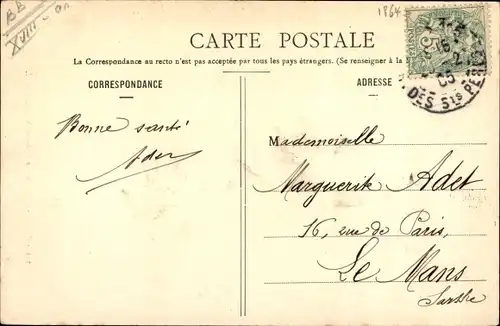 BB
XVIII
1864
CARTE POSTALE
La Correspondance au recto n'est pas acceptée par tous les pays étrangers. (Se renseigner à la
CORRESPONDANCE
ADRESSE
DES Sts PÈRES
5
Bonne santé
Mademoiselle
Marguerite Adet
16, rue de Paris,
Le Mans
Sarthe